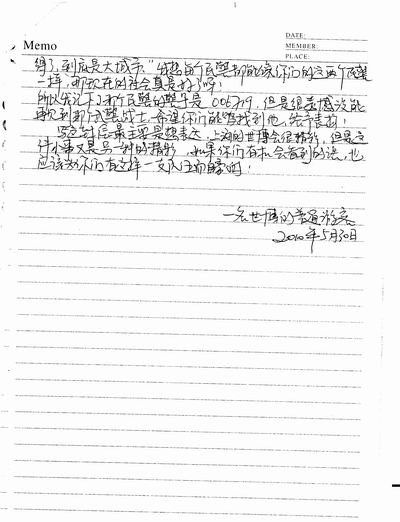 DATE:
Memo
MEMBER:
PLACE:
得了,到底是大城市."我想每个民警都能像你们的这两个民警
一样,那现在的社会真是好了啊!
所以我记下了那个民警的警号是005719,但是很遗憾没能
看到那位警战士,希望你们能够找到他,给予表扬!
写这封信最主要是想表达,上海的世博会很精彩,但是这
件小事又是另一种的精彩,如果你们有机会看到的话,也
应该为你们有这样一支队伍而自豪啊!
一名世博的普通游客
2010年5月30日